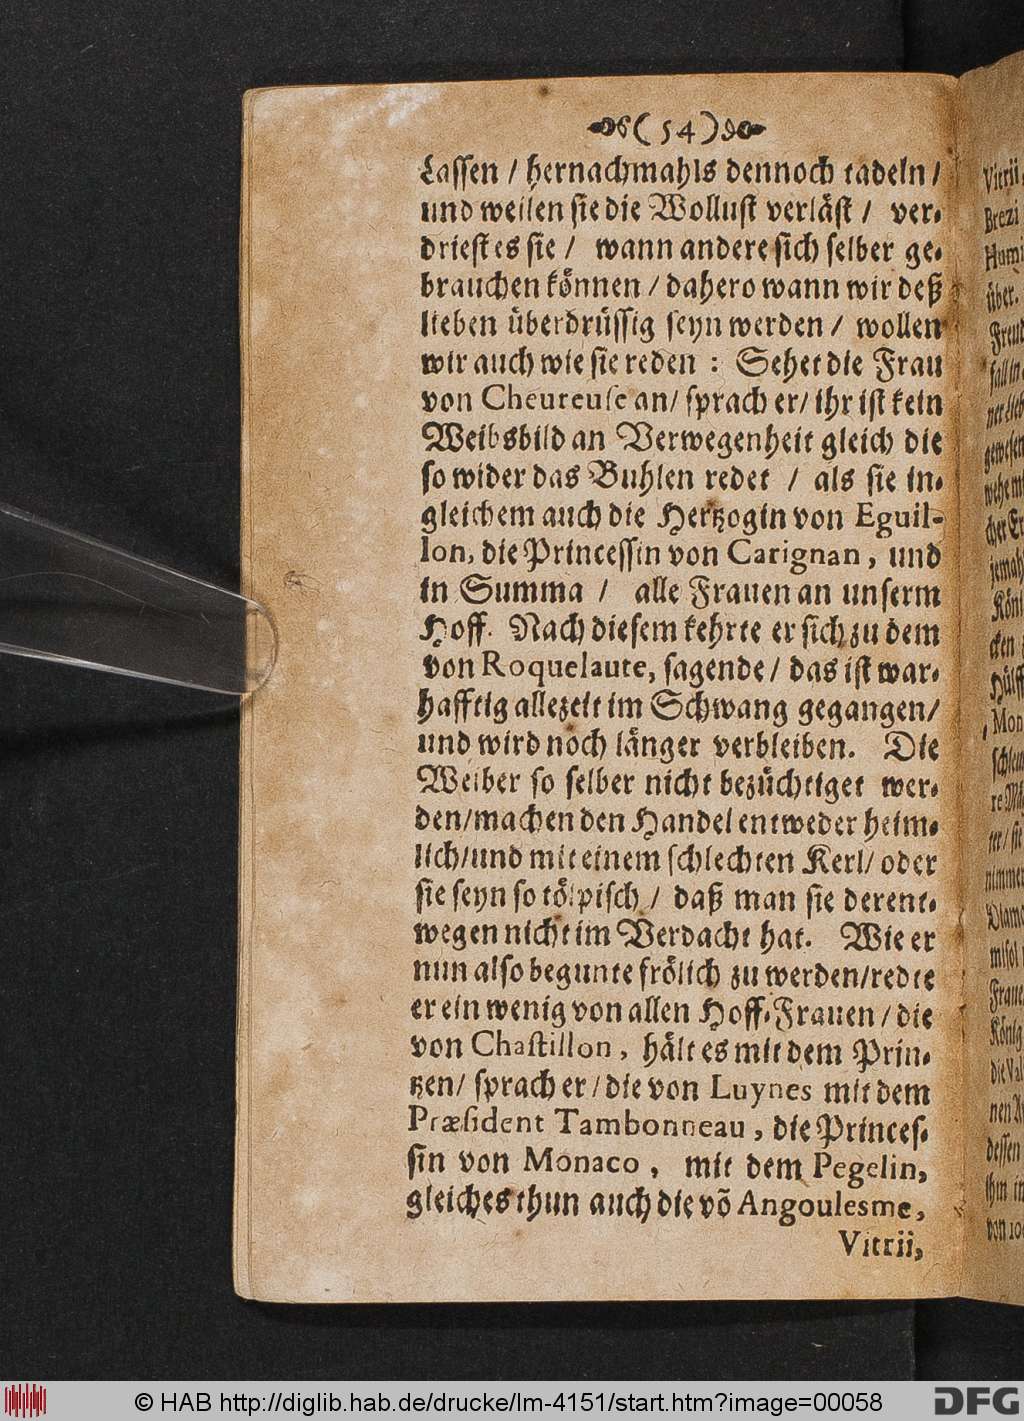 (54)
Lassen / hernachmahls dennoch tadeln /
und weilen sie die Wollust verläst / ver-
driest es sie / wann andere sich selber ge-
brauchen können / dahero wann wir deß
lieben überdrüssig seyn werden / wollen
wir auch wie sie reden : Sehet die Frau
von Cheureuse an / sprach er / ihr ist kein
Weibsbild an Verwegenheit gleich die
so wider das Buhlen redet / als sie in-
gleichem auch die Hertzogin von Eguil-
lon, die Princessin von Carignan, und
in Summa / alle Frauen an unserm
Hoff. Nach diesem kehrte er sich zu dem
von Roquelaute, sagende / das ist war-
hafftig allezeit im Schwang gegangen /
und wird noch länger verbleiben. Die
Weiber so selber nicht bezüchtiget wer-
den / machen den Handel entweder heim-
lich / und mit einem schlechten Kerl / oder
sie seyn so tölpisch / daß man sie derent-
wegen nicht im Verdacht hat. Wie er
nun also begunte frölich zu werden / redte
er ein wenig von allen Hoff-Frauen / die
von Chastillon, hält es mit dem Prin-
tzen / sprach er / die von Luynes mit dem
Præsident Tambonneau, die Princes-
sin von Monaco, mit dem Pegelin,
gleiches thun auch die võ Angoulesme,
Vitrii,
Vitrii
Brezi
über.
Köni
Hülff
Mon
Diam
Fraue
König
dessen
ihm in
© HAB http://diglib.hab.de/drucke/lm-4151/start.htm?image=00058
DFG